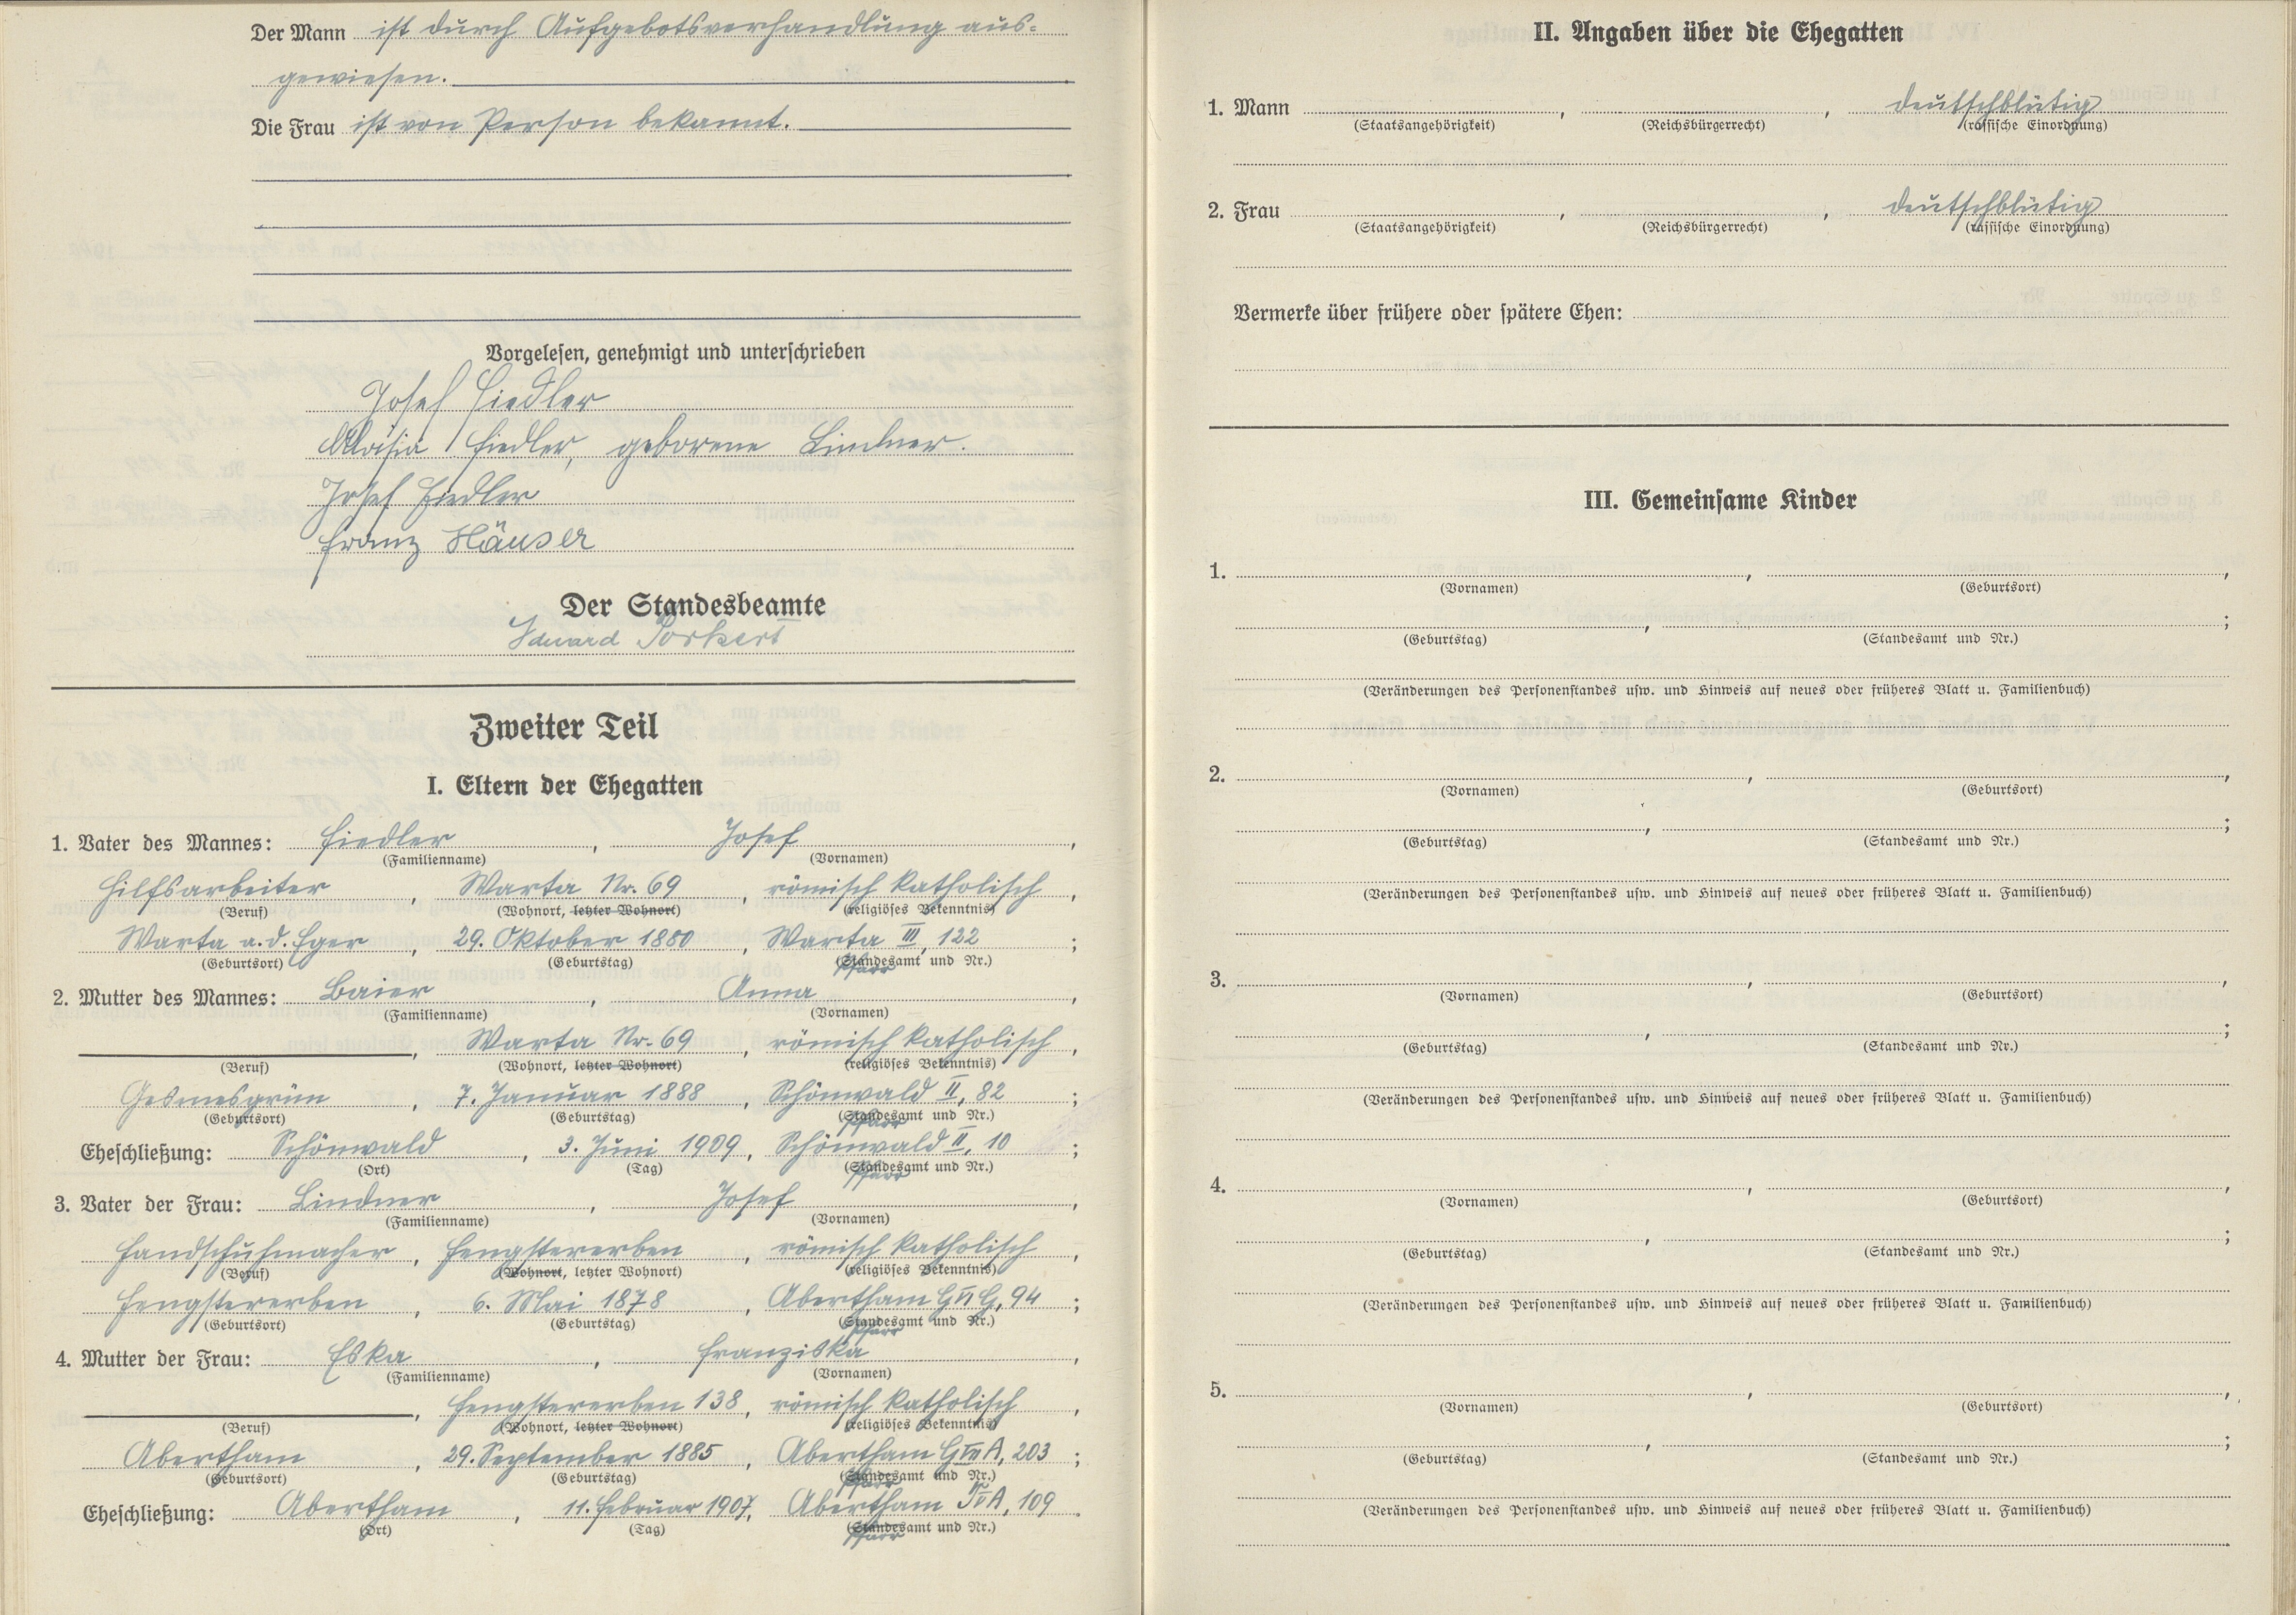 Der Mann ist durch Aufgebotsverhandlung aus=
gewiesen.
Die Frau ist von Person bekannt.
Vorgelesen, genehmigt und unterschrieben
Josef Fiedler
Aloisia Fiedler, geborene Lindner.
Josef Fiedler
Franz Häuser
Der Standesbeamte
Eduard Porkert
Zweiter Teil
I. Eltern der Ehegatten
1. Vater des Mannes: Fiedler, Josef,
(Familienname) (Vornamen)
Hilfsarbeiter, Warta Nr. 69, römisch katholisch,
(Beruf) (Wohnort, letzter Wohnort) (religiöses Bekenntnis)
Warta a. d. Eger, 29. Oktober 1880, Warta III, 122;
(Geburtsort) (Geburtstag) (Standesamt und Nr.)
Pfarr
2. Mutter des Mannes: Baier, Anna,
(Familienname) (Vornamen)
, Warta Nr. 69, römisch katholisch,
(Beruf) (Wohnort, letzter Wohnort) (religiöses Bekenntnis)
Gesmesgrün, 7. Januar 1888, Schönwald II, 82;
(Geburtsort) (Geburtstag) (Standesamt und Nr.)
Pfarr
Eheschließung: Schönwald, 3. Juni 1909, Schönwald II, 10;
(Ort) (Tag) (Standesamt und Nr.)
Pfarr
3. Vater der Frau: Lindner, Josef,
(Familienname) (Vornamen)
Handschuhmacher, Hengstererben, römisch katholisch,
(Beruf) (Wohnort, letzter Wohnort) (religiöses Bekenntnis)
Hengstererben, 6. Mai 1878, Abertham G VI G, 94;
(Geburtsort) (Geburtstag) (Standesamt und Nr.)
Pfarr
4. Mutter der Frau: Eska, Franziska,
(Familienname) (Vornamen)
, Hengstererben 138, römisch katholisch,
(Beruf) (Wohnort, letzter Wohnort) (religiöses Bekenntnis)
Abertham, 29. September 1885, Abertham G VII A, 203;
(Geburtsort) (Geburtstag) (Standesamt und Nr.)
Pfarr
Eheschließung: Abertham, 11. Februar 1907, Abertham A, 109.
(Ort) (Tag) (Standesamt und Nr.)
Pfarr
II. Angaben über die Ehegatten
1. Mann , , deutschblütig
(Staatsangehörigkeit) (Reichsbürgerrecht) (rassische Einordnung)
2. Frau , , deutschblütig
(Staatsangehörigkeit) (Reichsbürgerrecht) (rassische Einordnung)
Vermerke über frühere oder spätere Ehen:
III. Gemeinsame Kinder
1. , ,
(Vornamen) (Geburtsort)
, ;
(Geburtstag) (Standesamt und Nr.)
(Veränderungen des Personenstandes usw. und Hinweis auf neues oder früheres Blatt u. Familienbuch)
2. , ,
(Vornamen) (Geburtsort)
, ;
(Geburtstag) (Standesamt und Nr.)
(Veränderungen des Personenstandes usw. und Hinweis auf neues oder früheres Blatt u. Familienbuch)
3. , ,
(Vornamen) (Geburtsort)
, ;
(Geburtstag) (Standesamt und Nr.)
(Veränderungen des Personenstandes usw. und Hinweis auf neues oder früheres Blatt u. Familienbuch)
4. , ,
(Vornamen) (Geburtsort)
, ;
(Geburtstag) (Standesamt und Nr.)
(Veränderungen des Personenstandes usw. und Hinweis auf neues oder früheres Blatt u. Familienbuch)
5. , ,
(Vornamen) (Geburtsort)
, ;
(Geburtstag) (Standesamt und Nr.)
(Veränderungen des Personenstandes usw. und Hinweis auf neues oder früheres Blatt u. Familienbuch)